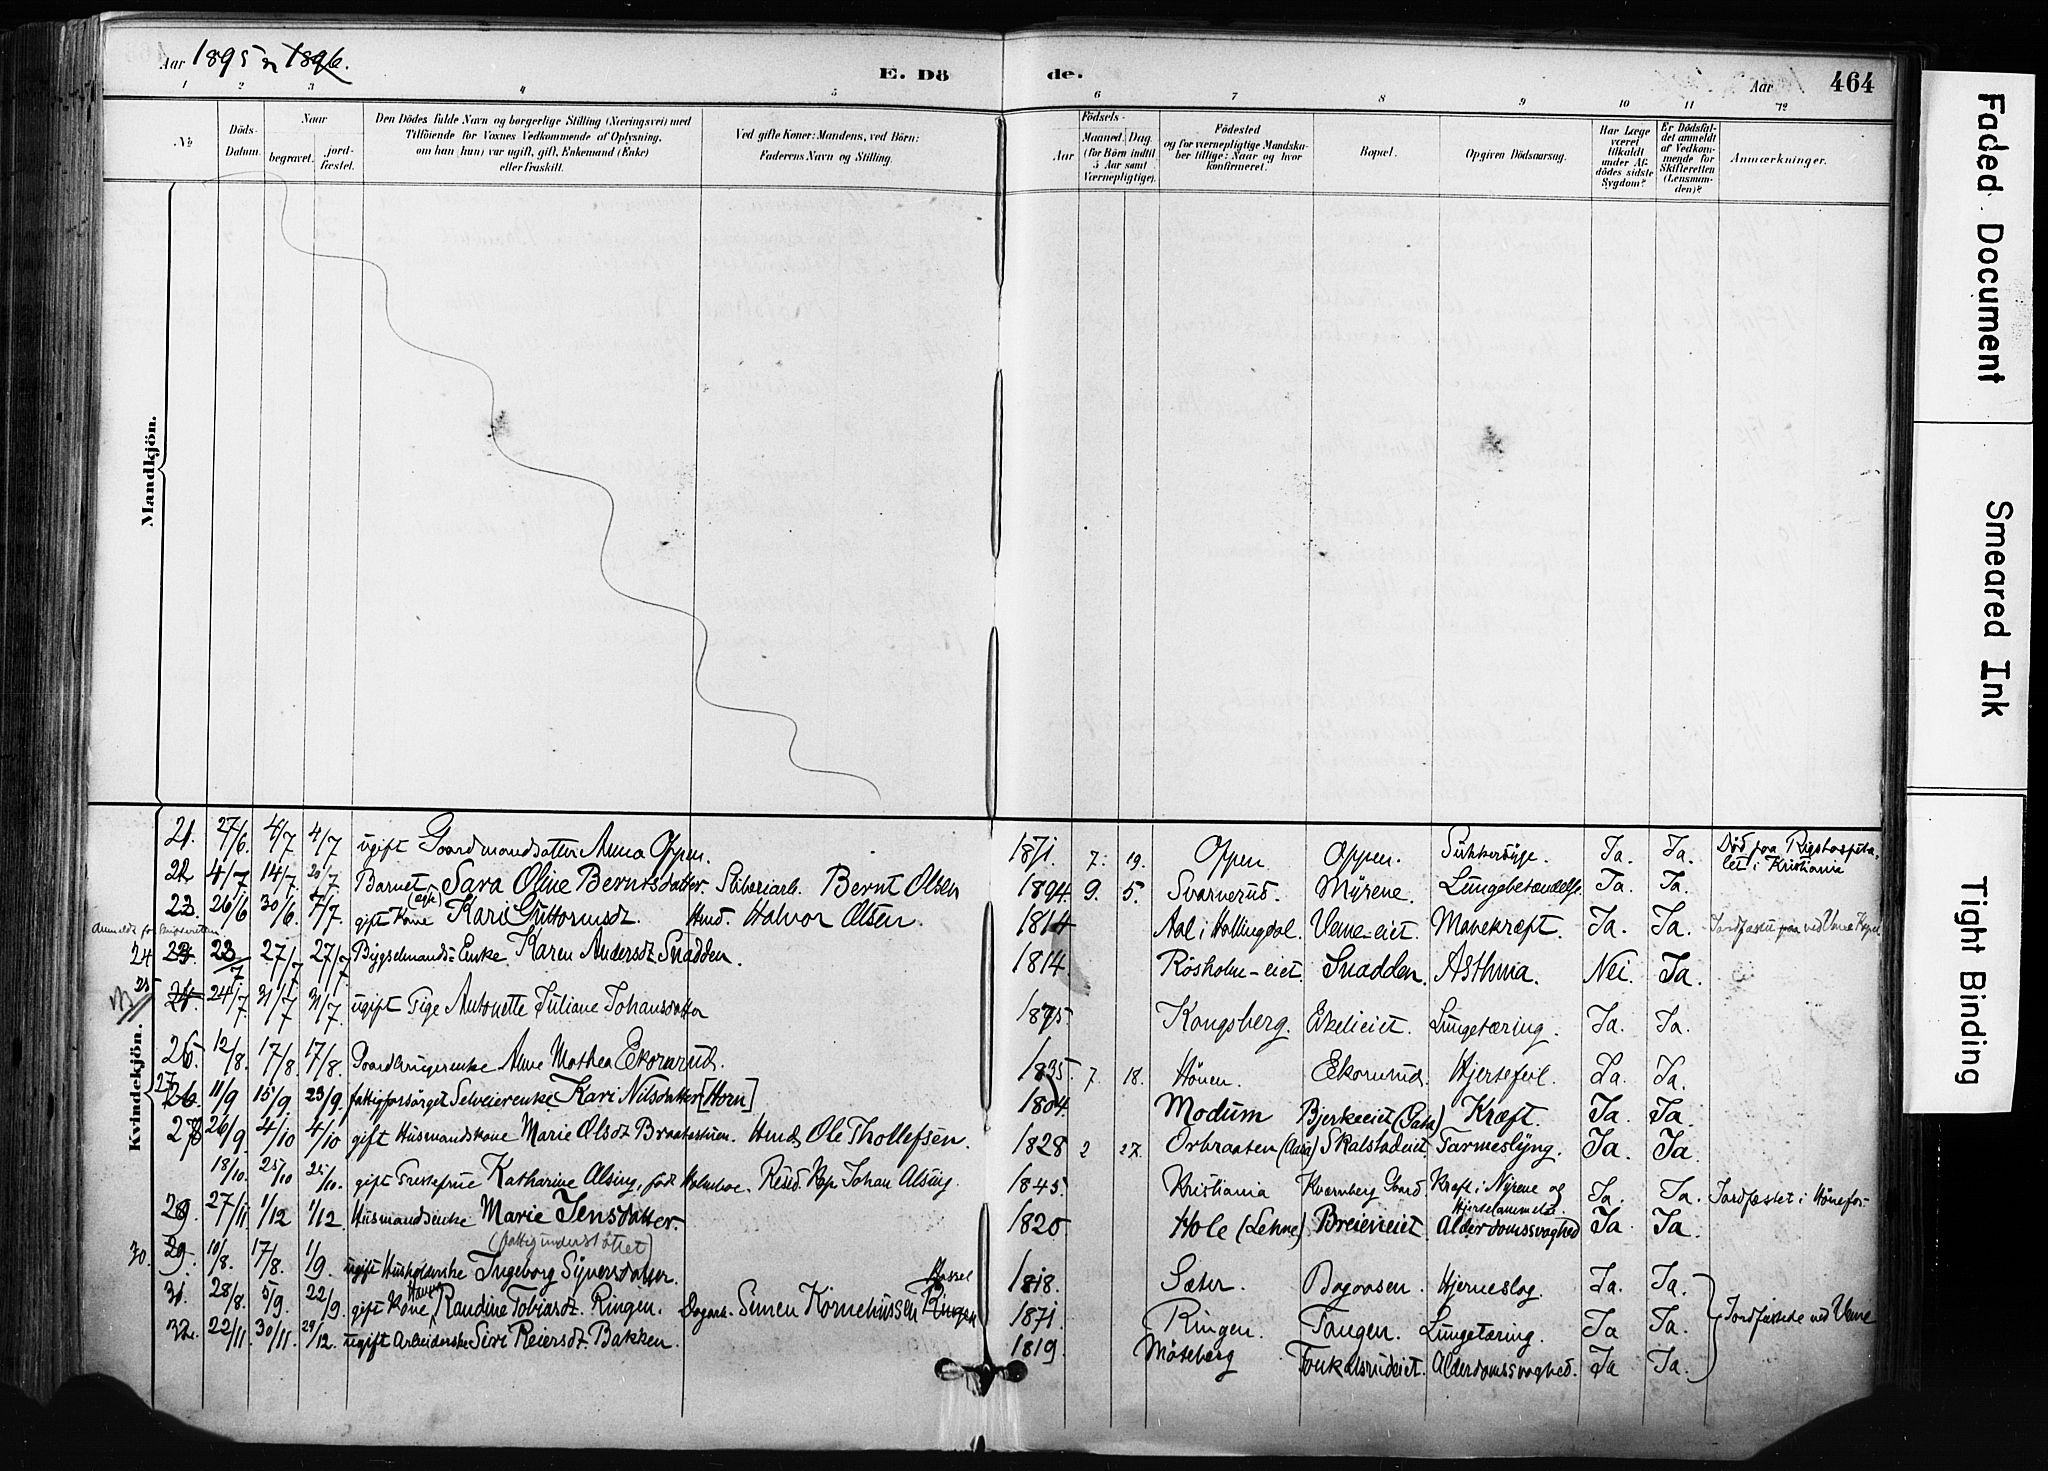 Aar 1895 1896.
E. Dö
de.
Aar
464
1 2 3 4 5 6 7 8 9 10 11 12
No
Döds-
Datum.
Naar
begravet.
jord-
fæstet.
Den Dödes fulde Navn og borgerlige Stilling (Næringsvei) med
Tilföiende for Voxnes Vedkommende af Oplysning,
om han (hun) var ugift, gift, Enkemand (Enke)
eller fraskilt.
Ved gifte Koner: Mandens, ved Börn:
Faderens Navn og Stilling.
Födsels-
Aar
Maaned.
Dag.
(for Börn indtil
5 Aar samt
Værnepligtige).
Födested
og for værnepligtige Mandska-
ber tillige: Naar og hvor
konfirmeret.
Bopæl.
Opgiven Dödsaarsag.
Har Læge
været
tilkaldt
under Af-
dödes sidste
Sygdom?
Er Dödsfal-
det anmeldt
af Vedkom-
mende for
Skifteretten
(Lensman-
den)?
Anmærkninger.
Mandkjön.
Kvindekjön.
21. 27/6. 4/7 4/7 ugift Gaardmandsdatter Anna Oppen. 1871. 7. 19. Oppen Oppen. Sukkersyge. Ja. Ja. Död paa Rigshospita-
let i Kristiania
22 4/7 14/7. 20/7. Barnet Sara Oline Berntsdatter. Sliberiarb. Bernt Olsen 1894. 9. 5. Svarverud. Myrene. Lungebetændelse. Ja. Ja.
23. 26/6 30/6. 7/7. gift Kone Kari Guttormsdt. Hmd. Halvor Olsen. 1814 Aal i Hallingdal. Veme-eiet. Mavekræft. Ja. Ja. Jordfæstet paa ved Veme Kapel
Anmeldt for Skifteretten
24 23. 23/7 27/7 27/7 Bygselmands-Enke Karen Andersdt Snadden. 1814. Rösholm-eiet. Snadden. Asthma. Nei. Ja.
25 24 24/7. 31/7 31/7 ugift Pige Antonette Juliane Johansdatter 1875. Kongsberg. Ekelieiet. Lungetæring. Ja. Ja.
26 12/8. 17/8. 17/8. Gaardbrugerenke Anne Mathea Ekornrud. 1835. 7. 18. Hönen. Ekornrud. Hjertefeil. Ja. Ja.
27 26. 11/9 15/9. 23/9. fattigforsörget Selveierenke Kari Nilsdatter [Horn] 1804. Modum Bjerkeeiet Kræft. Ja. Ja.
28 26/9. 4/10 4/10 gift Husmandskone Marie Olsdt Braatestuen. Hmd. Ole Thollefsen. 1828 2 27. Orbraaten Skalstadeiet. Tarmeslyng. Ja. Ja
18/10. 25/10 25/10. gift Præstefrue Katharine Alsing, föd Holmboe. Resid. Kap Johan Alsing. 1845. Kristiania Kværnberg Gaard Kræft i Nyrene og
Hjertelammelse. Ja. Ja. Jordfæstet i Hönefos.
29. 27/11 1/12 1/12. Husmandsenke Marie Jensdatter. 1820 Hole (Lehne) Breieneiet Alderdomssvaghed Ja Ja
(fattigunderstöttet)
30. 29. 10/8. 17/8. 1/9. ugift Husholderske Ingeborg Syversdatter. 1818. Sæter. Bagaasen. Hjerneslag. Ja. Ja.
31. 28/8. 5/9. 22/9. gift Kone Randine Tobiasdt. Ringen. Dagarb. Simen Kornelinssen Ringen Hassel 1871. Ringen. Tangen. Lungetæring. Ja Ja. Jordfæstede ved Veme
32. 22/11 30/11. 29/12. ugift Arbeiderske Siri Reiersdt Bakken. 1819. Möseberg Fonkalsrudeiet. Alderdomssvaghed. Ja Ja.
Faded Document
Smeared Ink
Tight Binding